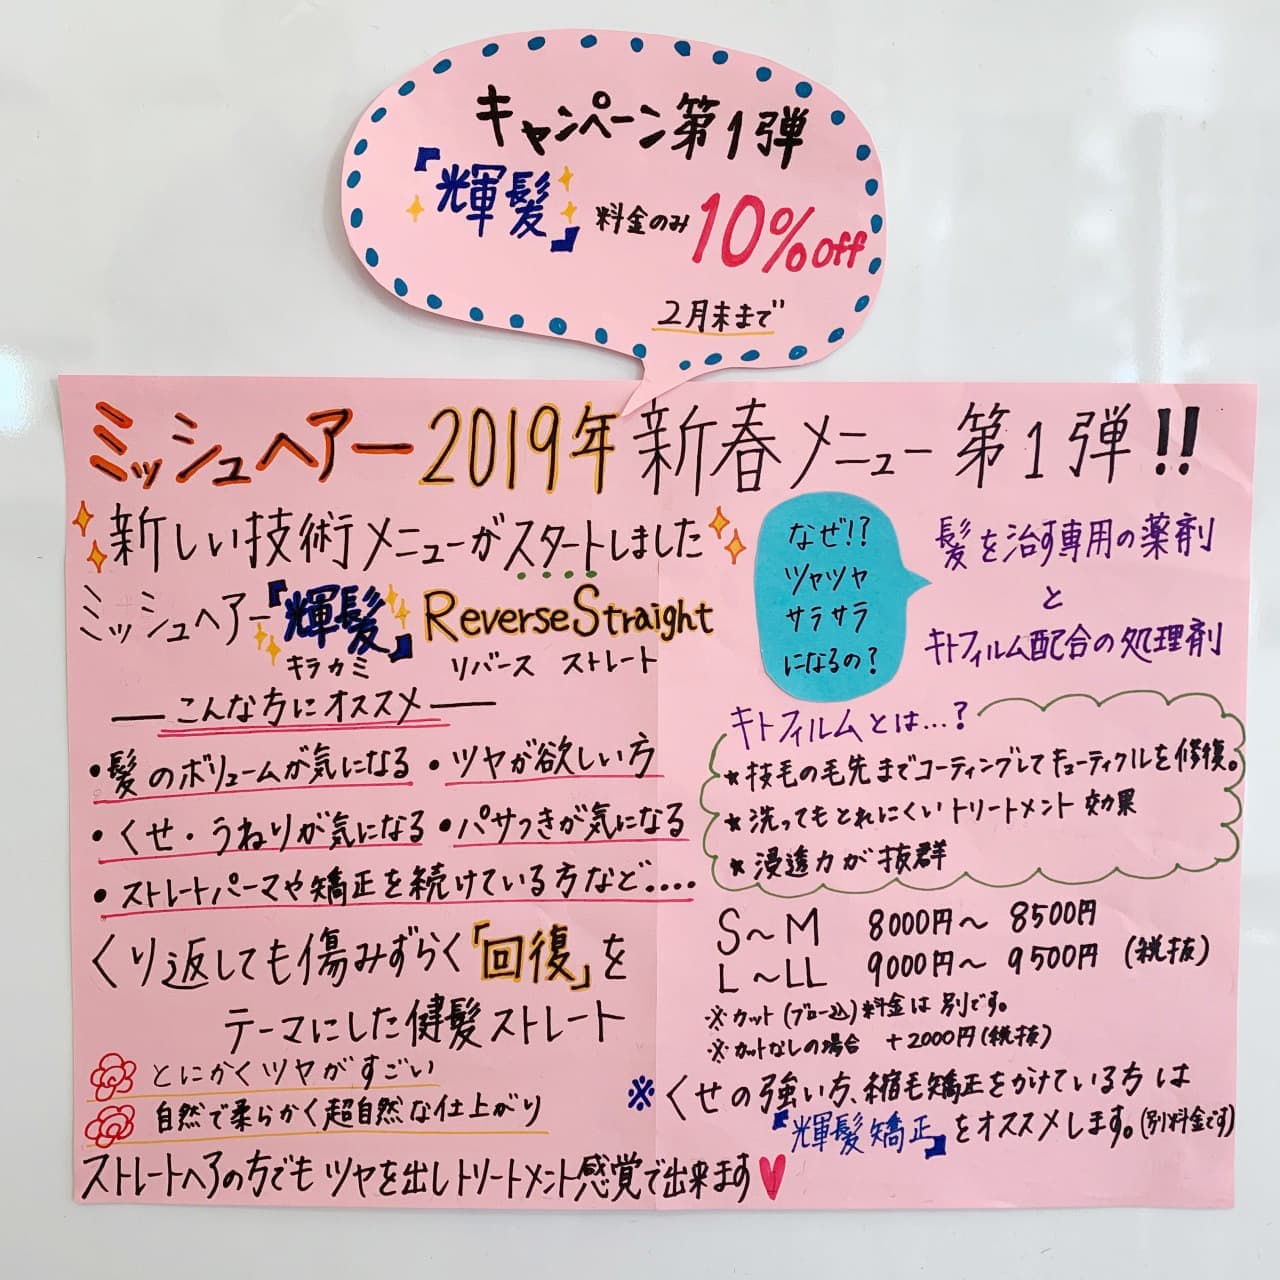 キャンペーン第1弾
『輝髪』料金のみ10%off
2月末まで
ミッシュヘアー2019年新春メニュー第1弾!!
新しい技術メニューがスタートしました
ミッシュヘアー『輝髪』ReverseStraight
キラカミ リバース ストレート
こんな方にオススメ
・髪のボリュームが気になる ・ツヤが欲しい方
・くせ・うねりが気になる ・パサつきが気になる
・ストレートパーマや矯正を続けている方など....
くり返しても傷みずらく「回復」を
テーマにした健髪ストレート
とにかくツヤがすごい
自然で柔らかく超自然な仕上がり
ストレートヘアの方でもツヤを出しトリートメント感覚で出来ます♥
なぜ!?
ツヤツヤ
サラサラ
になるの?
髪を治す専用の薬剤
と
キトフィルム配合の処理剤
キトフィルムとは...?
★枝毛の毛先までコーティングしてキューティクルを修復。
★洗ってもとれにくいトリートメント効果
★浸透力が抜群
S～M 8000円～8500円
L～LL 9000円～9500円 (税抜)
※カット(ブロー込)料金は別です。
※カットなしの場合 +2000円(税抜)
※くせの強い方、縮毛矯正をかけている方は
『輝髪矯正』をオススメします。(別料金です)